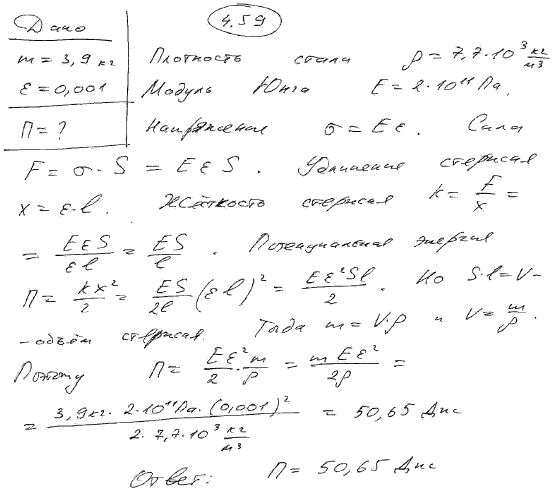 4.59
Дано
m = 3,9 кг Плотность стали ρ = 7,7·10³ кг/м³
ε = 0,001 Модуль Юнга E = 2·10¹¹ Па.
П = ? Напряжение σ = Eε. Сила
F = σ·S = EεS. Удлинение стержня
x = ε·l. Жёсткость стержня k = F/x =
= EεS/εl = ES/l. Потенциальная энергия
П = kx²/2 = ES/2l (εl)² = Eε²Sl/2. Но S·l = V –
– объём стержня. Тогда m = V·ρ и V = m/ρ.
Поэтому П = Eε²/2 · m/ρ = mEε²/2ρ =
= 3,9 кг · 2·10¹¹ Па · (0,001)² / 2 · 7,7·10³ кг/м³ = 50,65 Дж
Ответ: П = 50,65 Дж